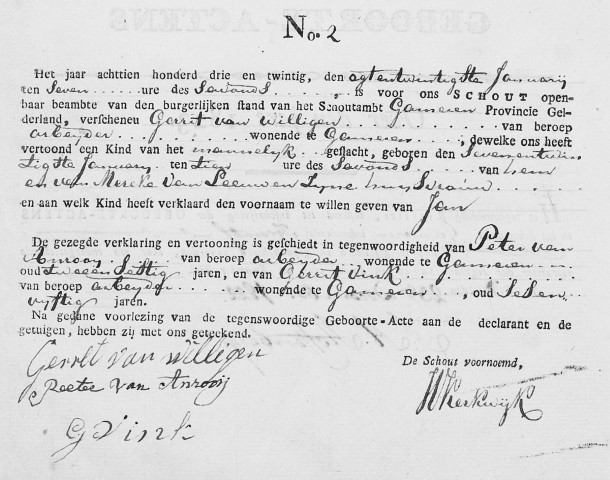 No. 2
Het jaar achttien honderd drie en twintig, den agtentwintigste Januarij
ten Seven ure des Savonds, is voor ons SCHOUT open-
baar beambte van den burgerlijken stand van het Schoutambt Gameren Provincie Gel-
derland, verscheneu Gerrit van Willigen van beroep
arbeyder wonende te Gameren, dewelke ons heeft
vertoond een Kind van het mannelyk geslacht, geboren den Sevenentwin
tigste January ten tien ure des Savonds van hem
en van Mereke van Leeuwen Zyne huysvrouw
en aan welk Kind heeft verklaard den voornaam te willen geven van Jan
De gezegde verklaring en vertooning is geschiedt in tegenwoordigheid van Peter van
Anrooy van beroep arbeyder wonende te Gameren
oud jaren, en van Gerrit Vink
van beroep arbeyder wonende te Gameren, oud Sesen
vyftig jaren.
Na gedane voorlezing van de tegenswoordige Geboorte-Acte aan de declarant en de
getuigen, hebben zij met ons geteekend.
Gerret van Willigen
Peeter van Anrooij
G Vink
De Schout voornoemd,
HKerkwijk